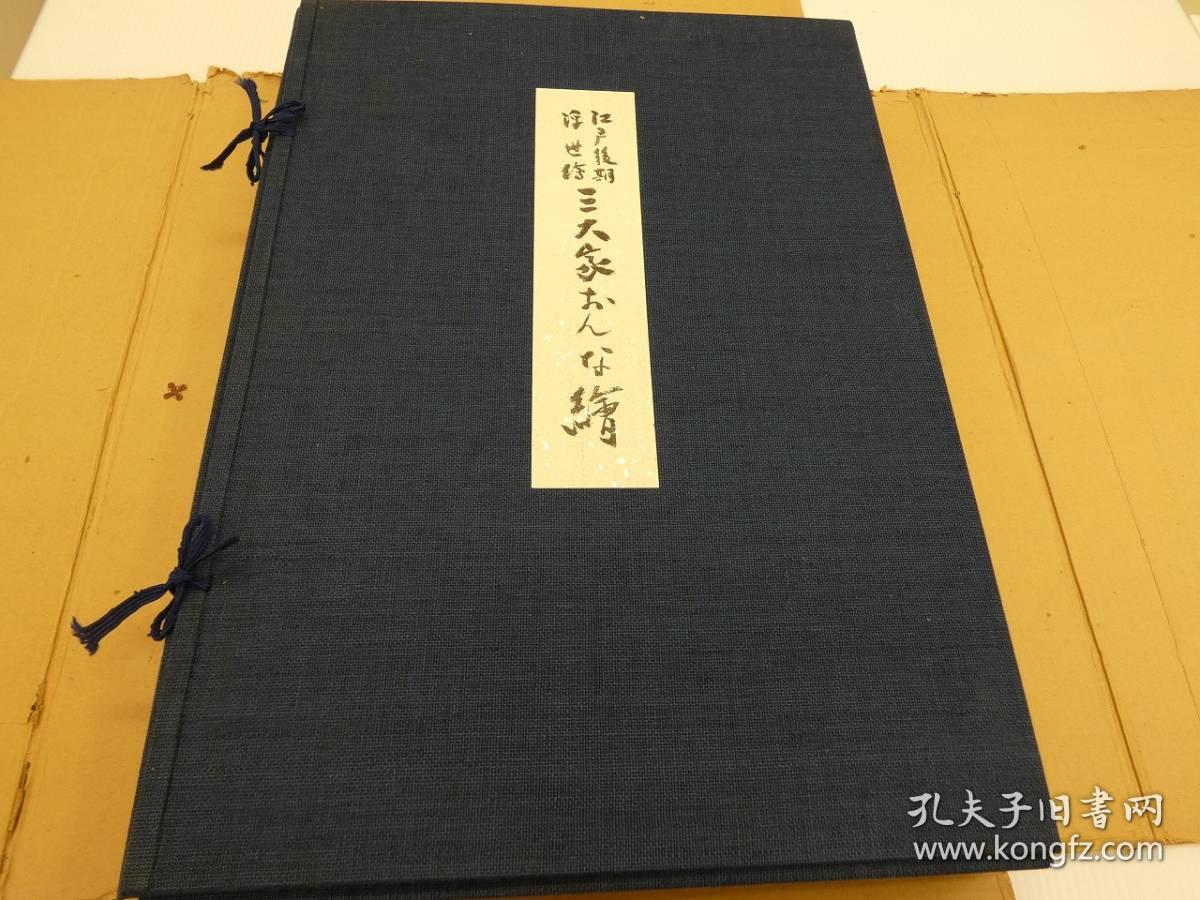 江戸後期
浮世繪
三大家おんな繪
孔夫子旧書网
www.kongfz.com